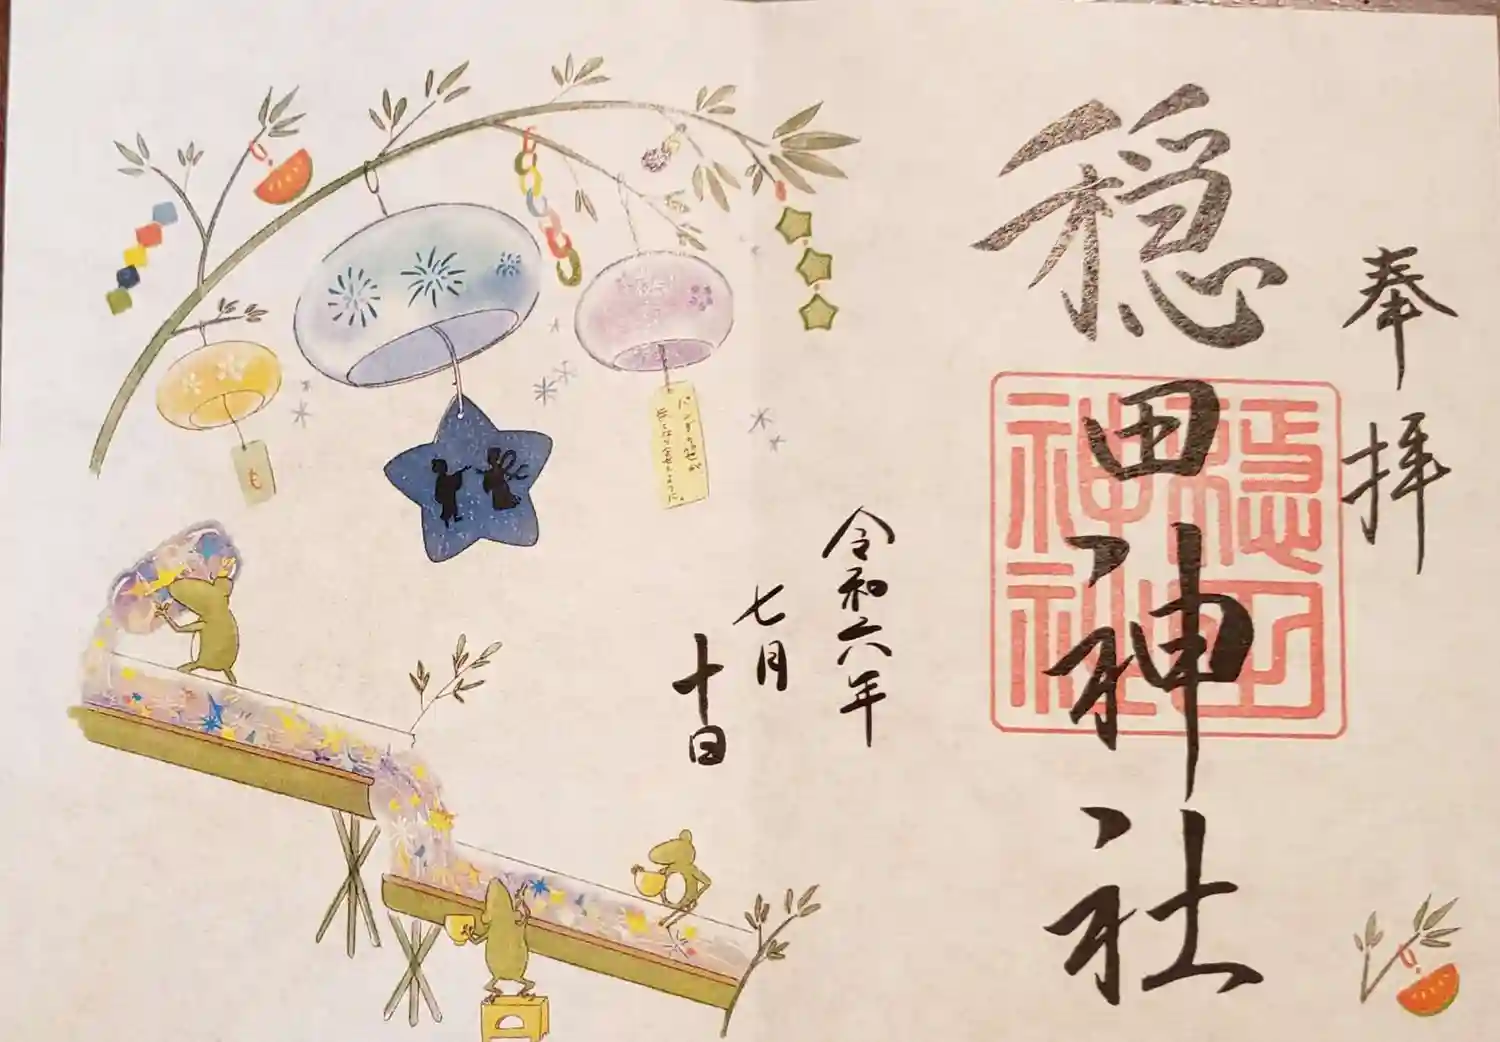 奉拝
穏田神社
穏田
神社
令和六年
七月
十日
も